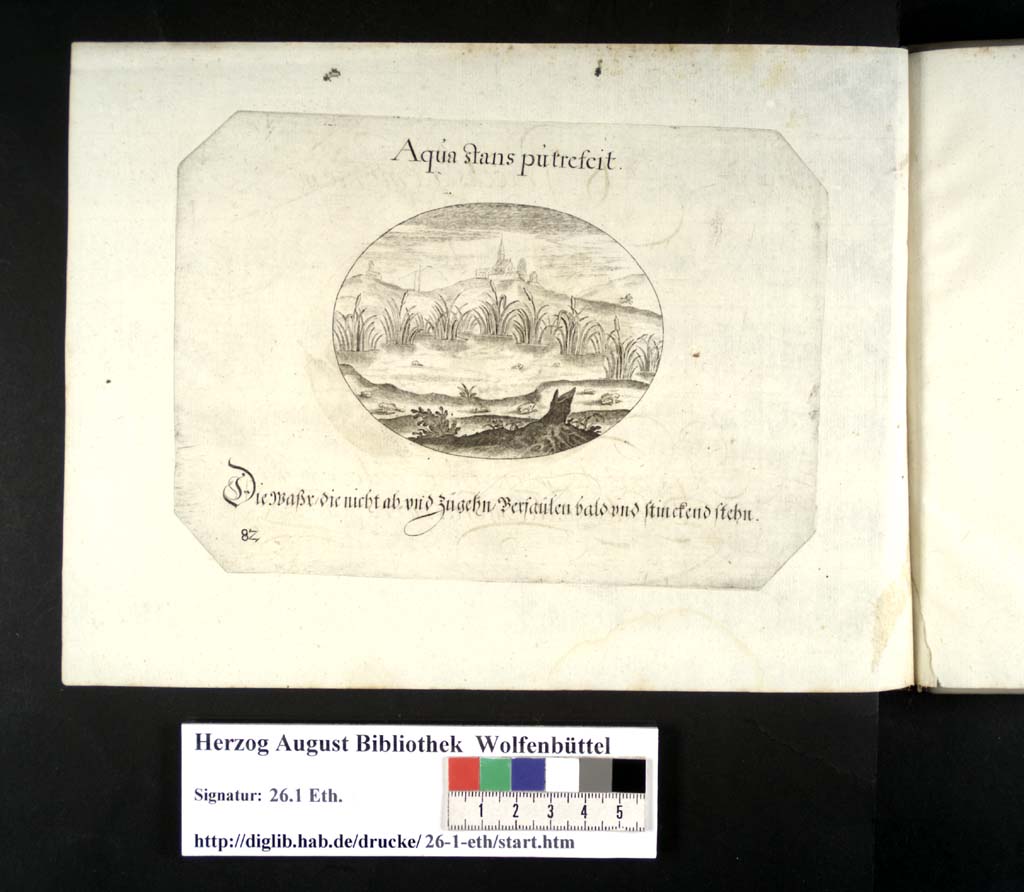 Aqua stans putrescit.
Die Waßr, die nicht ab vnd Zugehn, Verfaulen bald vnd stinckend stehn.
82
Herzog August Bibliothek Wolfenbüttel
Signatur: 26.1 Eth.
1 2 3 4 5
http://diglib.hab.de/drucke/ 26-1-eth/start.htm